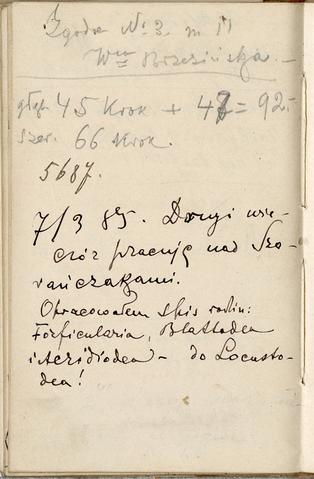 Zgoda No 3. m 11
Wna Brzezińska. –
głęb. 45 Krok + 47 = 92.
szer. 66 Krok.
5687.
7/3 85. Drugi wie-
czór pracuję nad Sza-
rańczakami.
Opracowałem spis rodzin:
Forficularia, Blattodea
i Acridiodea – do Locusto-
dea!